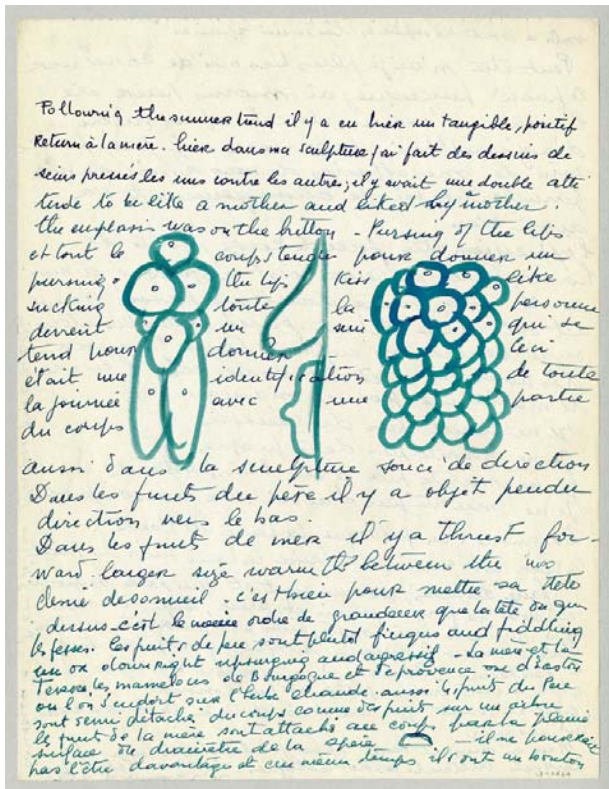 Following the summer trend il y a eu hier un tangible, positif
Return à la mère. hier dans ma sculpture j'ai fait des dessins de
seins pressés les uns contre les autres; il y avait une double atti
tude to be like a mother and liked by mother.
the emphasis was on the button - Pursing of the lips
et tout le corps tendu pour donner un
pursing the lips kiss like
sucking toute la personne
devient un sein qui se
tend pour donner ceci
était une identification de toute
la journée avec une partie
du corps
aussi dans la sculpture souci de direction
Dans les fruits du père il y a objet pendu
direction vers le bas.
Dans les fruits de mer il y a thrust for-
ward larger size warmth between the two
demi de sommeil. c'est bien pour mettre sa tete
dessus. c'est le meme ordre de grandeur que la tete ou que
les fesses. les fruits de pere sont plutot fingers and fiddling
un ox downright upsurging and agressif - La mer et la
Terre les mamelons de Bourgogne et de provence ose d'Easton
ou l'on s'endort sur l'herbe chaude. aussi les fruit du Pere
sont semi détachés du corps comme des fruit sur un arbre
les fruit de la mère sont attaché au corps par la pleine
surface ou diametre de la - il ne pourrait
pas l'être davantage et en meme temps ils ont un bouton